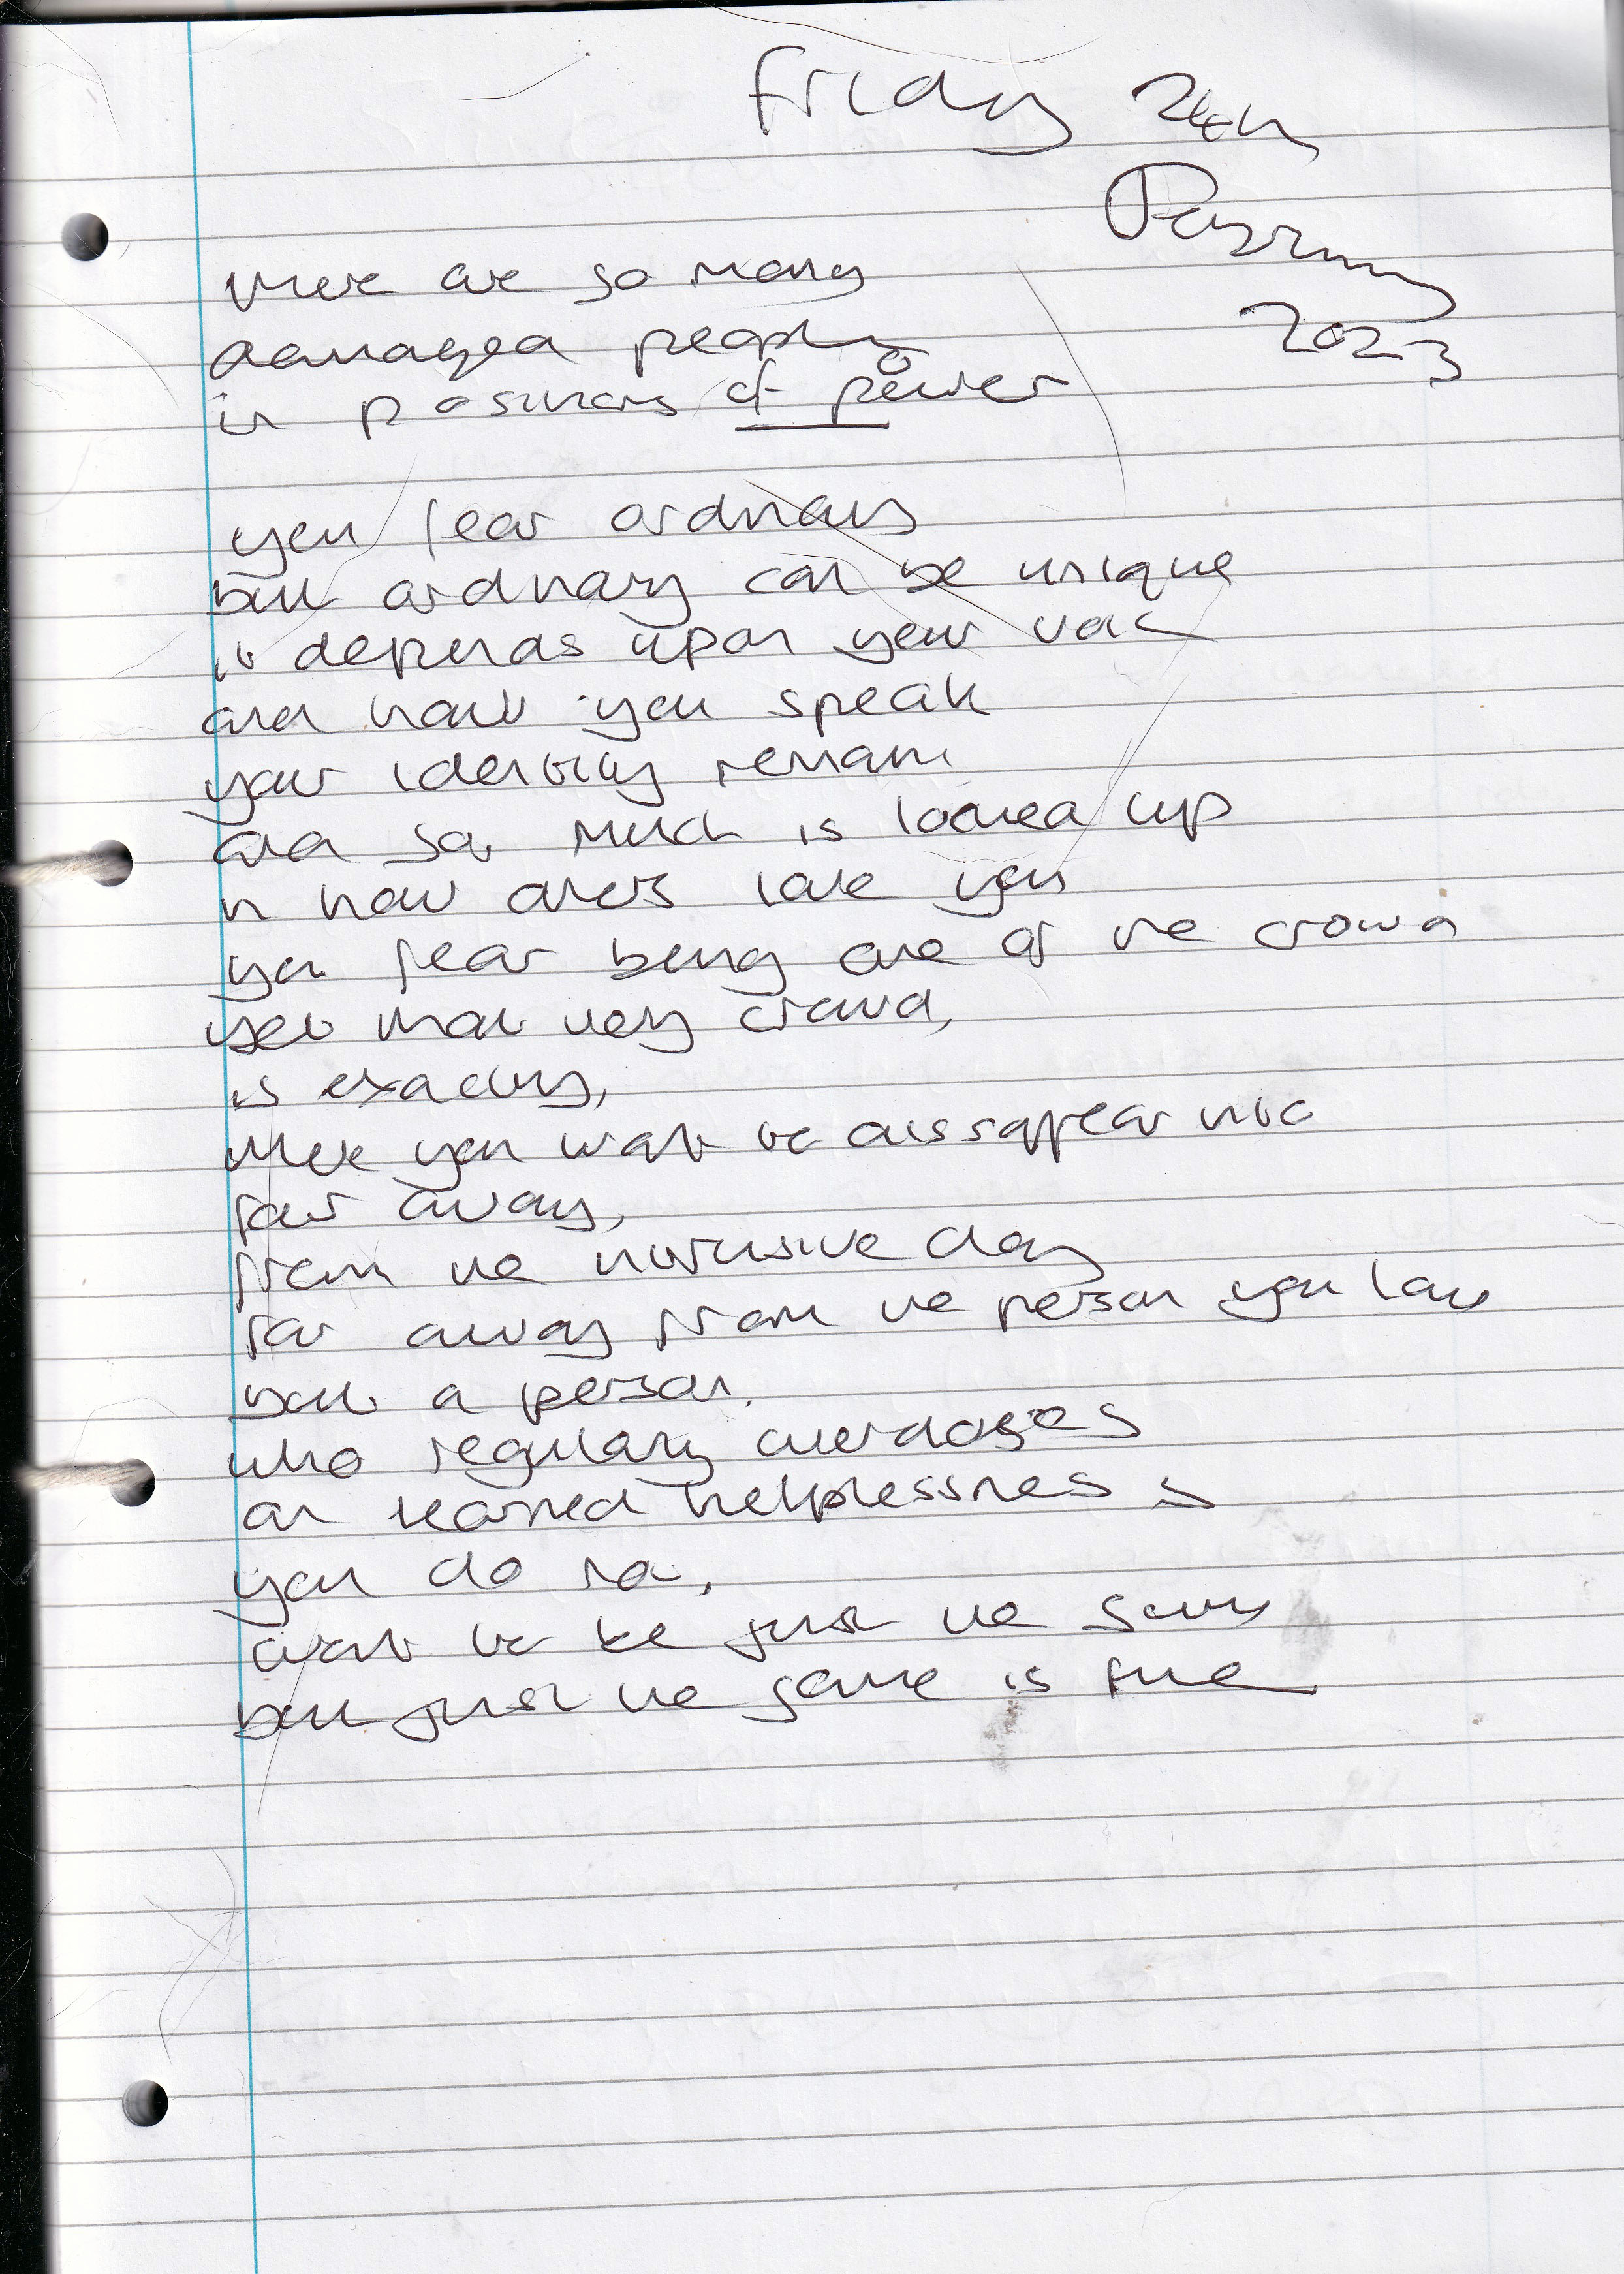 Friday 24th
February
2023
there are so many
damaged people
in positions of power
you fear ordinary
but ordinary can be unique
it depends upon your
and how you speak
your identity remains
and so much is locked up
in how others love you
you fear being one of the crowd
yet that very crowd,
is exactly,
where you want to dissappear into
far away,
from the intrusive day
far away from the person you love
but a person.
who regulary overdoses
on learned helplessness
you do not,
want to be just the same
but just the same is fine